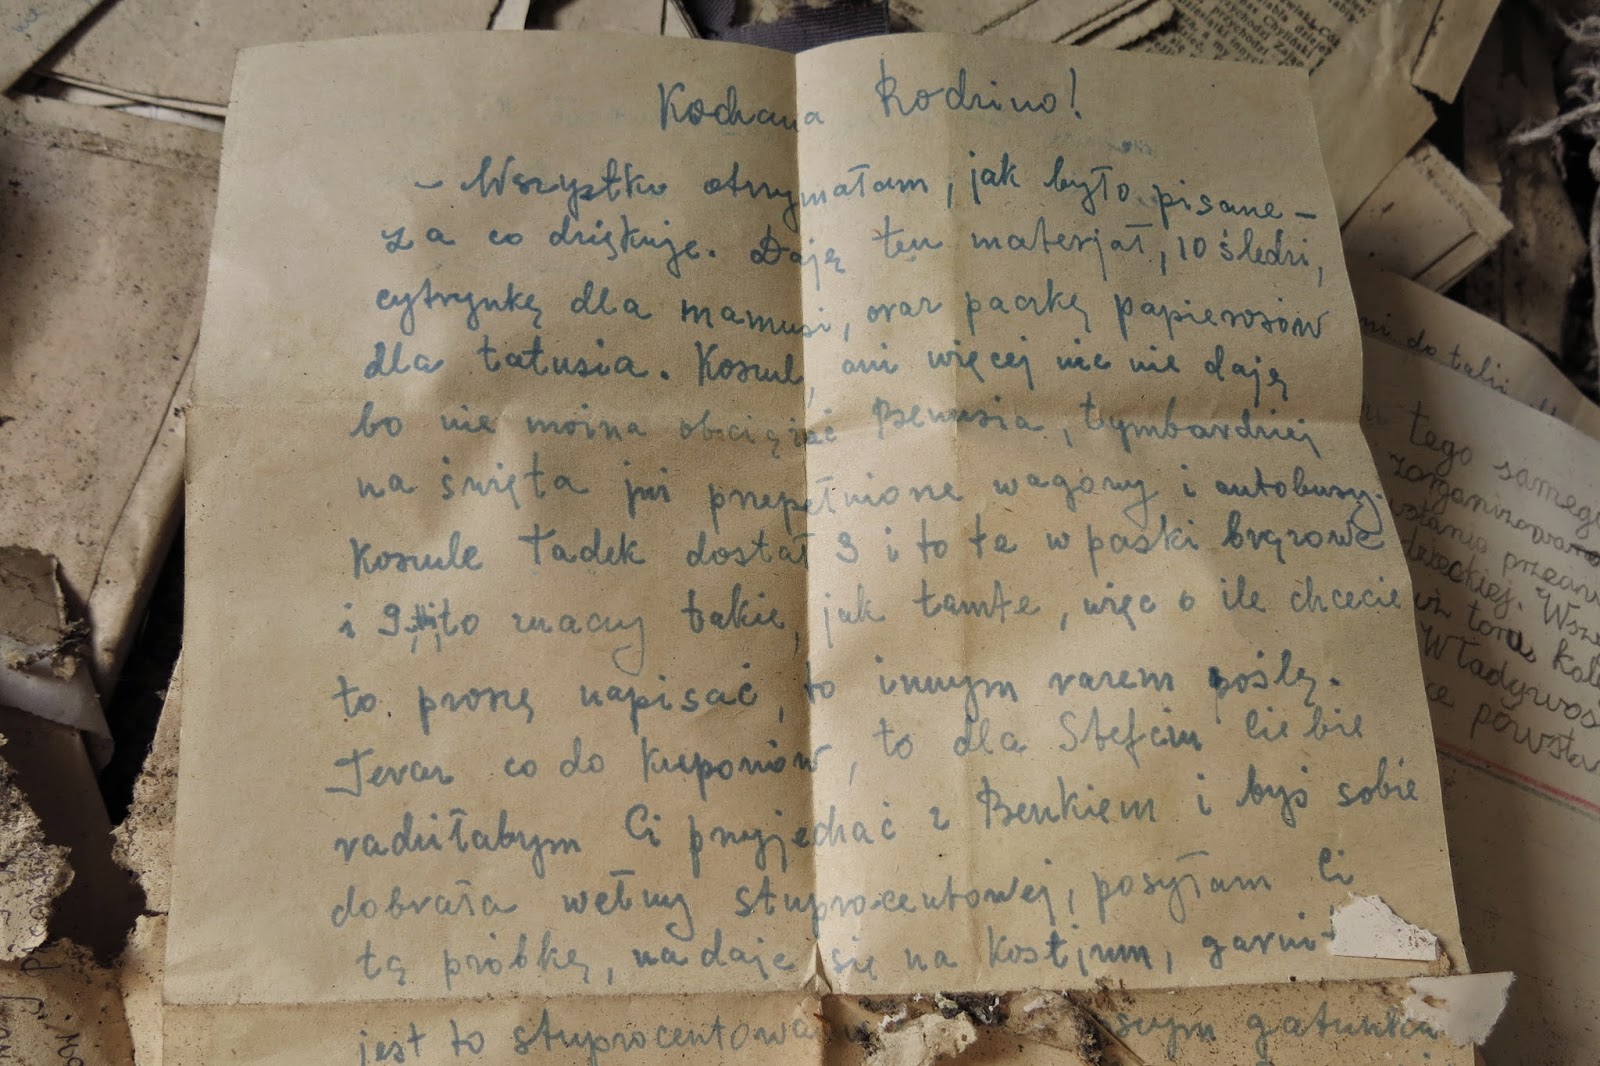 Kochana Rodzino!
- Wszystko otrzymałam, jak było pisane -
za co dziękuję. Daję ten materjał, 10 śledzi,
cytrynkę dla mamusi, oraz paczkę papierosów
dla tatusia. Koszul, ani więcej nic nie daję
bo nie można obciążać Benusia, tymbardziej
na święta już przepełnione wagony i autobusy.
Koszule Tadek dostał 3 i to te w paski brązowe
i to znaczy takie, jak tamte, więc o ile chcecie
to proszę napisać, to innym razem poślę.
Teraz co do kuponów, to dla Stefciu Ciebie
radziłabym Ci przyjechać z Benkiem i byś sobie
dobrała wełny stuprocentowej, posyłam Ci
tą próbkę, nadaje się na kostjum, garnit
jest to stuprocentowa gatunku
tego samego
zorganizowano
Władywos
powsta